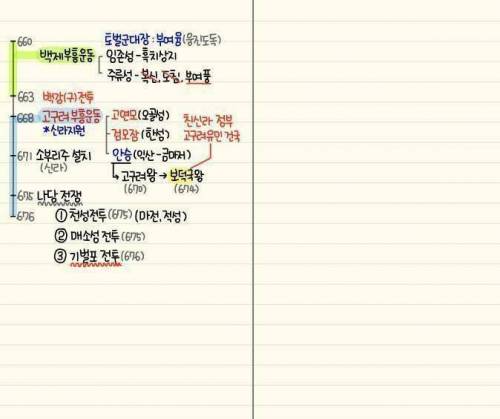 660 토벌군대장 : 부여융 (웅진도독)
백제 부흥운동 임존성 - 흑치상지
주류성 - 복신, 도침, 부여풍
663 백강(구)전투
668 고구려 부흥운동 고연모 (오골성) 친신라 정부
*신라지원 검모잠 (한성) 고구려유민 건국
671 소부리주 설치 안승 (익산-금마저)
(신라) ↳ 고구려왕 → 보덕국왕
(670) (674)
675 나당 전쟁
676 ① 천성전투 (675) (마전, 적성)
② 매소성 전투 (675)
③ 기벌포 전투 (676)